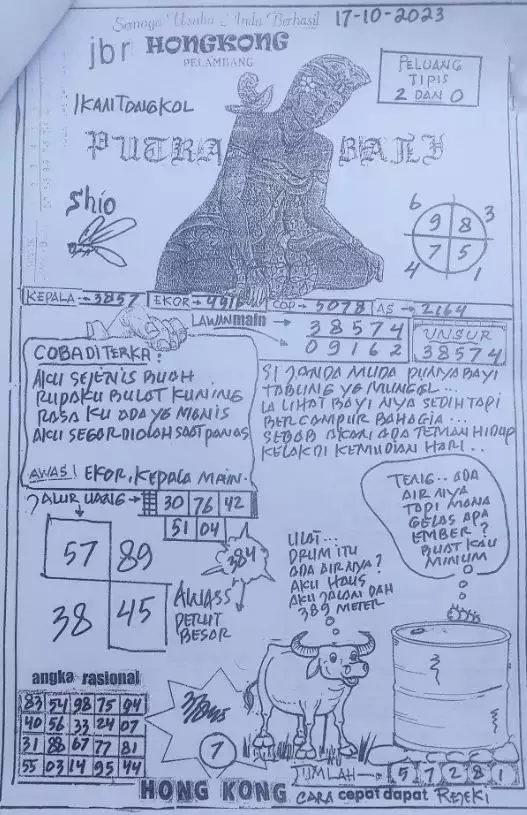 Semoga Usaha Anda Berhasil
17-10-2023
jbr HONGKONG
PELAMBANG
PELUANG
TIPIS
2 DAN 0
IKAN TONGKOL
PUTRA BALI
Shio
6
9 8 3
7 5
4 1
KEPALA → 3857 EKOR → 4916 COP → 5078 AS → 2164
LAWAN main → 38574
09162
UNSUR
38574
COBA DITERKA :
AKU SEJENIS BUAH
RUPAKU BULAT KUNING
RASA KU ADA YG MANIS
AKU SEGAR DIOLAH SAAT PANAS
AWAS! EKOR, KEPALA MAIN.
SI JANDA MUDA PUNYA BAYI
TABUNG YG MUNGGL...
IA LIHAT BAYI NYA SEDIH TAPI
BERCAMPUR BAHAGIA...
SEBAB AKAN ADA TEMAN HIDUP
KELAK DI KEMUDIAN HARI..
ALUR UANG → 30 76 42
51 04
57 89
38 45
384
AWASS
PERUT
BESAR
LILAT...
DRUM ITU
ADA AIRNYA?
AKU HAUS
AKU JALAN DAH
389 METER
TENG.. ADA
AIR NYA
TAPI MANA
GELAS APA
EMBER?
BUAT KAU
MINUM
angka rasional
83 54 98 75 94
40 56 33 24 07
31 88 67 77 81
55 03 14 95 44
7
JUMLAH → 5 7 2 8 1
HONG KONG CARA cepat dapat REJEKI